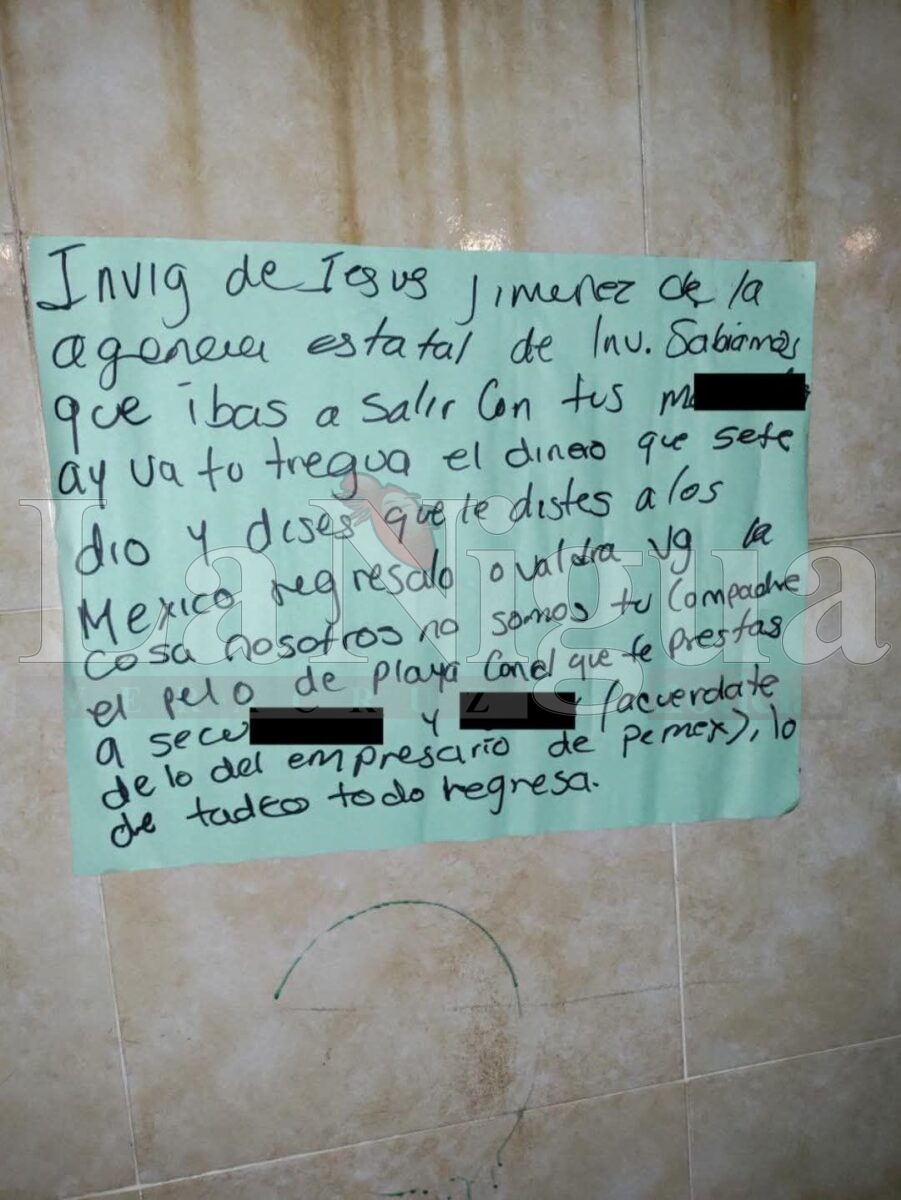 Invig de Jesus Jimenez de la
agencia estatal de Inv. Sabiamos
que ibas a salir Con tus
ay va tu tregua el dinero que sete
dio y dises que te distes a los
Mexico regresalo o valdra vg la
cosa nosotros no somos tu Compadre
el pelo de playa Canel que te prestas
a secu y (acuerdate
de lo del empresario de pemex), lo
de tadeo todo regresa.
LaNigua
VERACRUZ